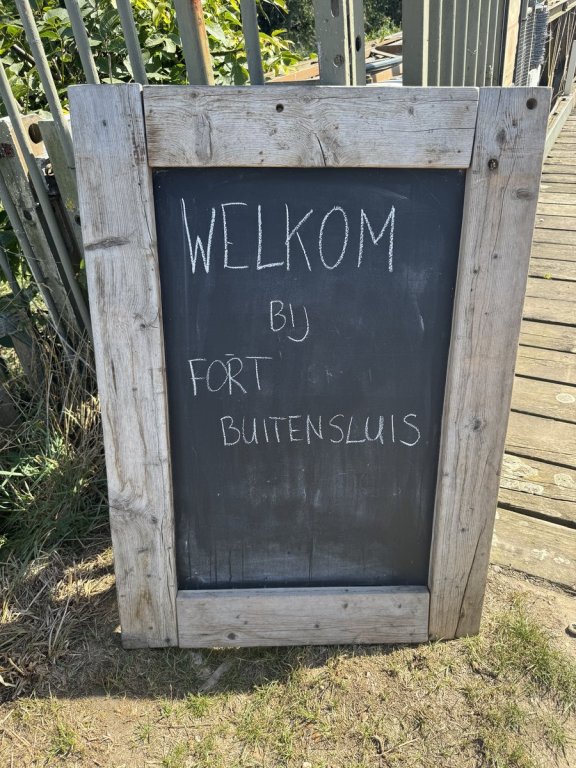 WELKOM
BIJ
FORT
BUITENSLUIS